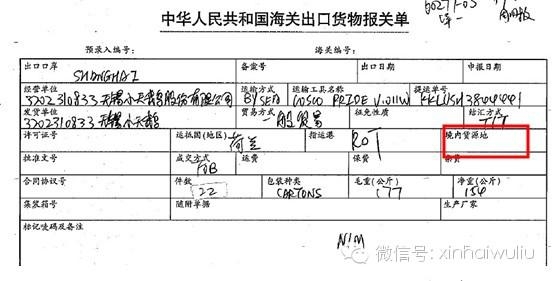 中华人民共和国海关出口货物报关单
预录入编号： 海关编号：
出口口岸 备案号 出口日期 申报日期
SHANGHAI
经营单位 运输方式 运输工具名称 提运单号
3202310833 无锡小天鹅股份有限公司 BY SEA COSCO PRIDE V.011W KKLUSH3844441
发货单位 贸易方式 征免性质 结汇方式
3202310833 无锡小天鹅 一般贸易 T/T
许可证号 运抵国(地区) 指运港 境内货源地
荷兰 ROT
批准文号 成交方式 运费 保费 杂费
FOB
合同协议号 件数 包装种类 毛重(公斤) 净重(公斤)
22 CARTONS 177 154
集装箱号 随附单据 生产厂家
标记唛码及备注
N/M
微信号: xinhaiwuliu